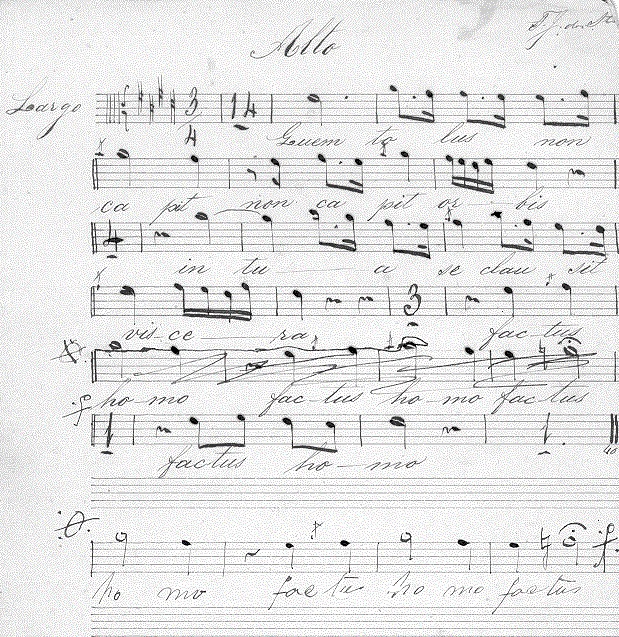 Alto
Largo 3/4 14
Quem to lus non
ca pit non ca pit or bis
in tu a se clau sit
3
vis-ce ra fac-tus
ho-mo fac-tus ho-mo factus
factus ho-mo
40
ho mo factus ho mo factus